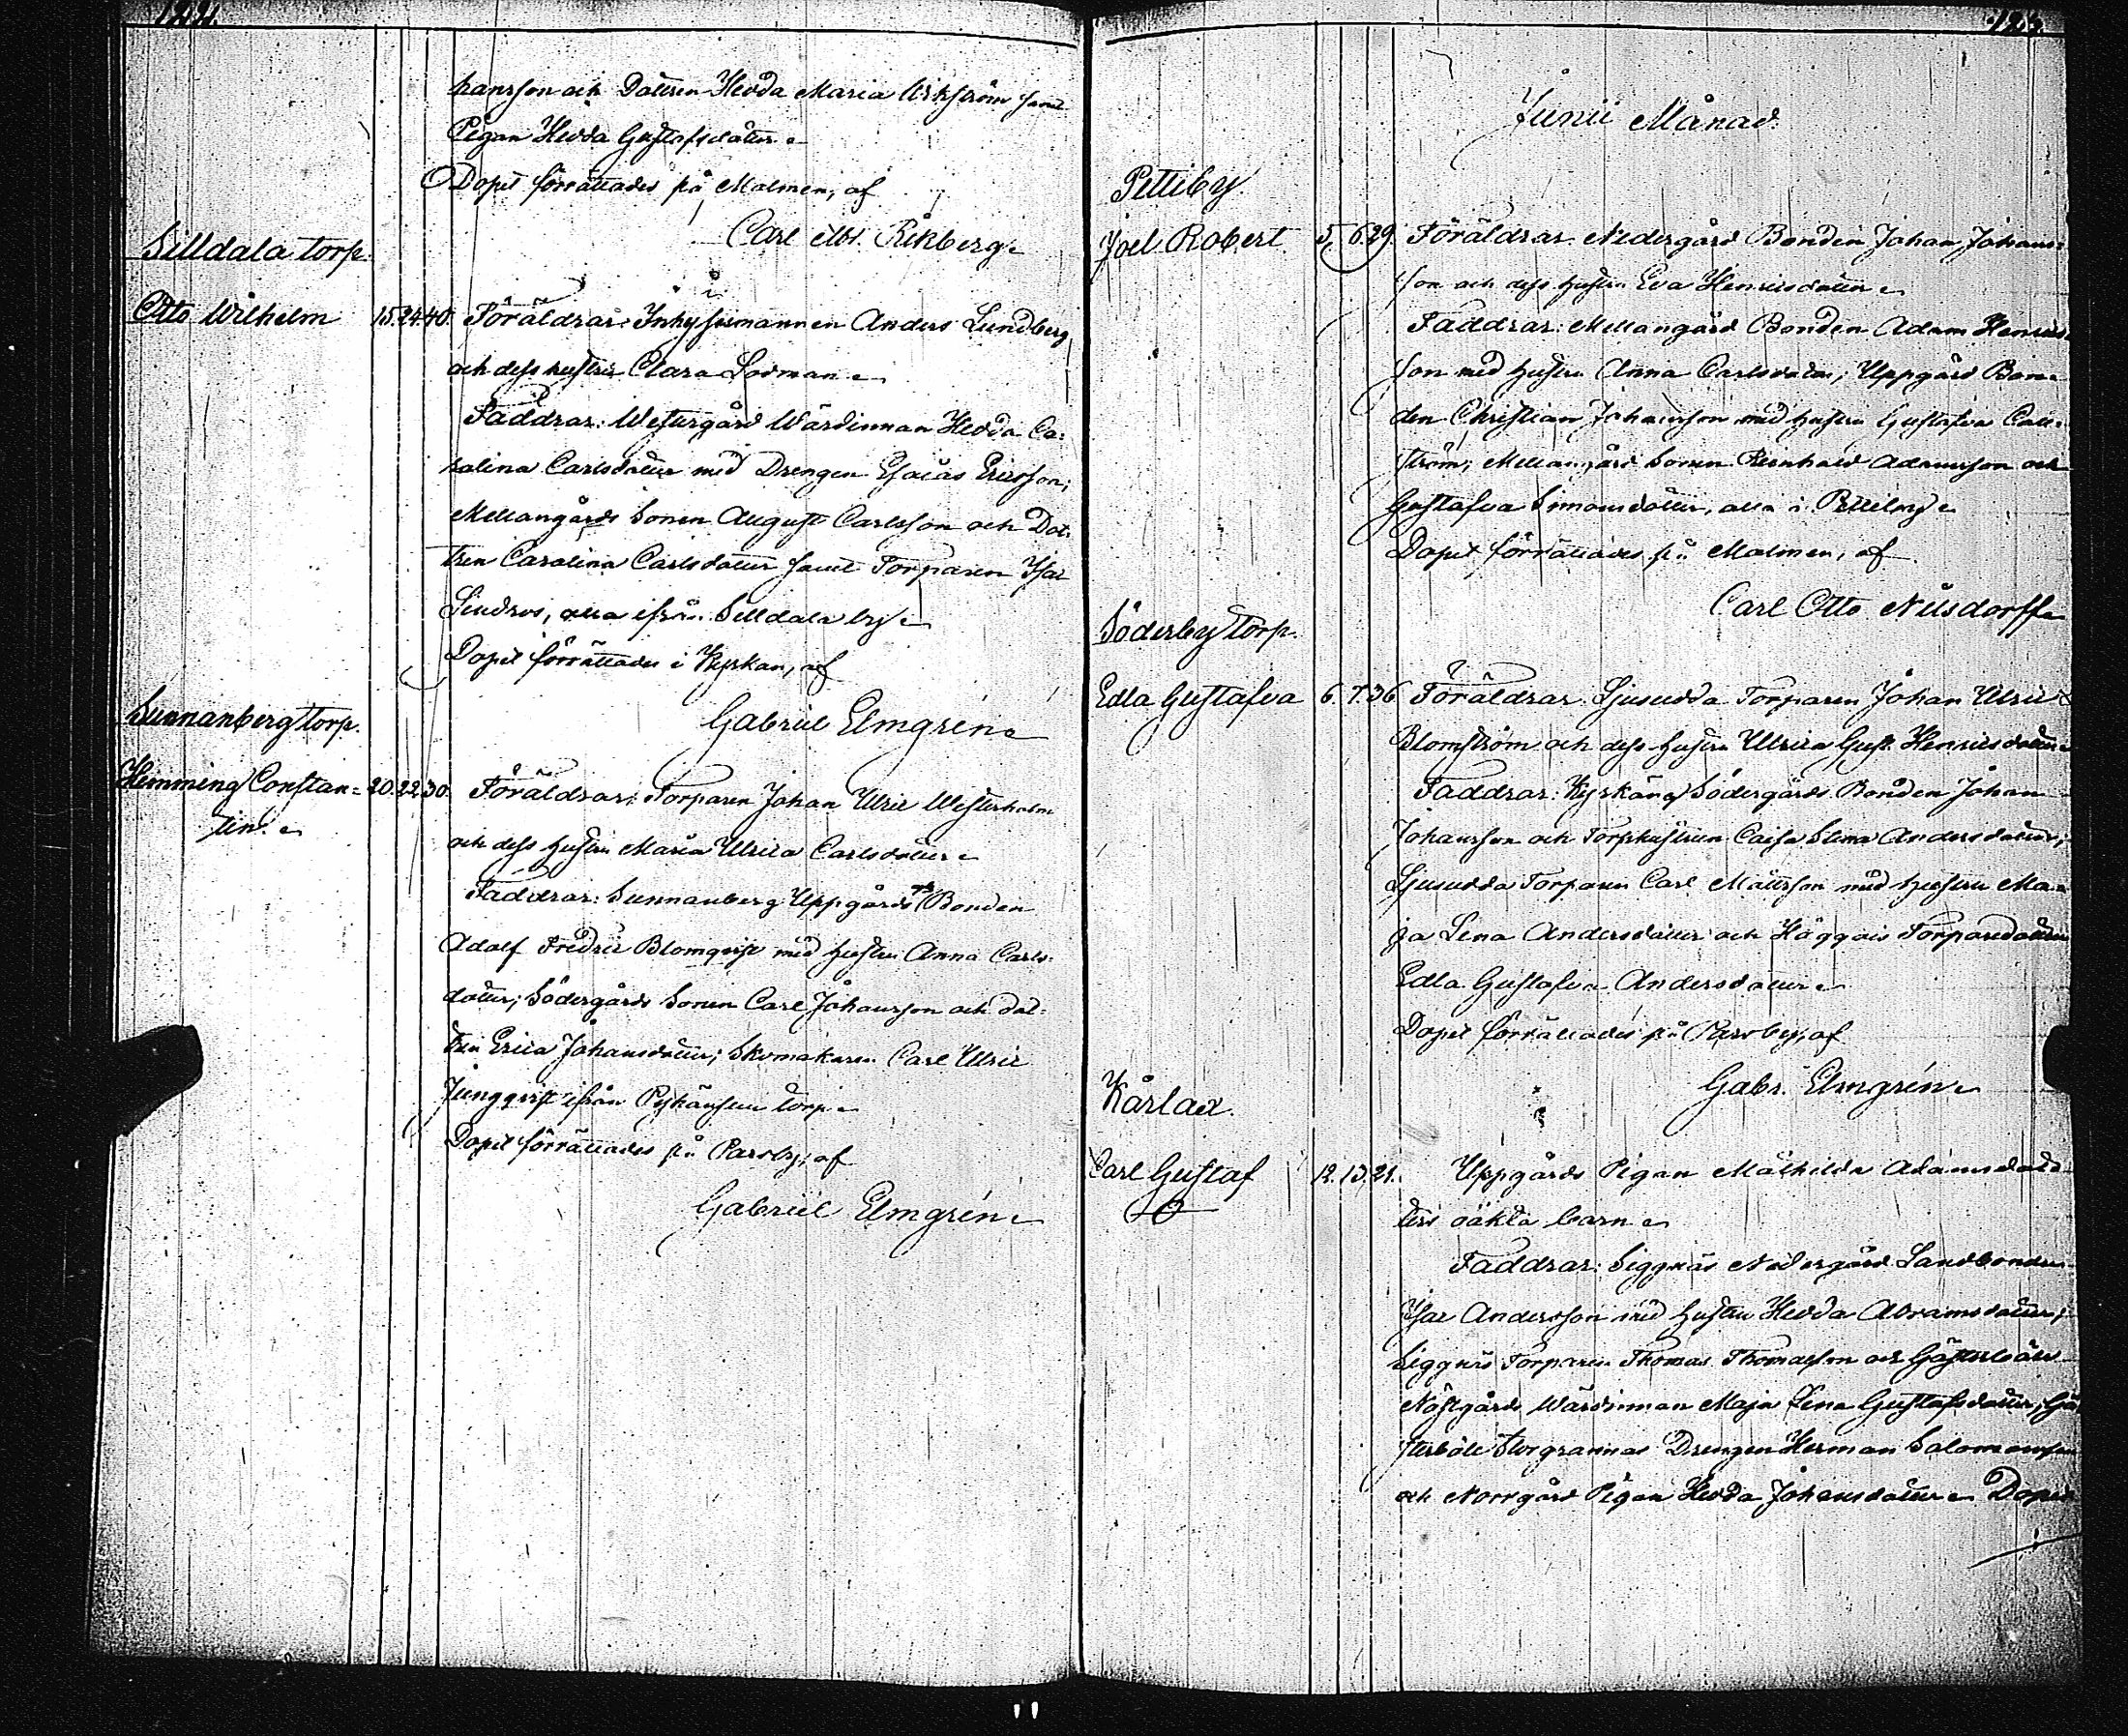 124.
hansson och Dottren Hedda Maria Wikström samt
Pigan Hedda Gustafsdotter.
Dopet förrättades på Malmen, af
Carl Alb. Rikberg.
Silldala torp.
Otto Wilhelm 15. 24. 40. Föräldrar: Inhysesmannen Anders Lundberg
och dess hustru Clara Lodman.
Faddrar: Westergård Wärdinnan Hedda Ca-
talina Carlsdotter med Drengen Esaias Ericsson;
Mellangårds Sonen August Carlsson och Dot-
tren Carolina Carlsdotter samt Torparen Isac
Lindros, alla ifrån Silldala by.
Dopet förrättades i Kyrkan, af
Gabriel Elmgrén.
Sunnanberg torp.
Hemming Constan= 20. 22. 30. Föräldrar: Torparen Johan Ulric Westerholm
tin. och dess hustru Maria Ulrica Carlsdotter.
Faddrar: Sunnanberg Uppgårds Bonden
Adolf Fredric Blomqvist med hustru Anna Carls-
dotter; Södergårds Sonen Carl Johansson och dot-
tren Erica Johansdotter; Skomakaren Carl Ulric
Jungqvist ifrån torp.
Dopet förrättades på Parsby, af
Gabriel Elmgrén.
125.
Junii Månad.
Pettiby
Joel Robert 5. 6. 29. Föräldrar: Nedergård Bonden Johan Johans-
son och dess hustru Eva Henricsdotter.
Faddrar: Mellangård Bonden Adam Henrics-
son med hustru Anna Carlsdotter; Uppgård Bon-
den Christian Johansson med hustru Gustafva Call-
ström; Mellangård Sonen Reinhold Adamsson och
Gustafva Simonsdotter, alla i Pettiby.
Dopet förrättades på Malmen, af
Carl Otto Nilsdorff
Söderby torp.
Edla Gustafva 6. 7. 36. Föräldrar: Ljusudda Torparen Johan Ulric
Blomström och dess hustru Ulrica Gust. Henricsdotter.
Faddrar: Södergårds Bonden Johan
Johansson och Torphustrun Caisa Stina Andersdotter;
Ljusudda Torparen Carl Mattsson med hustru Ma-
ja Lena Andersdotter och Häggais Torparedottren
Edla Gustafva Andersdotter.
Dopet förrättades på Parsby, af
Gabr. Elmgrén.
Kårlax.
Carl Gustaf 12. 13. 21. Uppgårds Pigan Mathilda Adamsdot-
ters oäkta barn.
Faddrar: Siggnäs Nedergård Landbonden
Isac Andersson med hustru Hedda Abramsdotter;
Siggnäs Torparen Thomas Thomasson och Gästerböle
Nästgårds Wärdinnan Maja Lena Gustafsdotter; Gä-
sterböle Storgrannas Drengen Herman Salomonsson
och Norrgård Pigan Hedda Johansdotter. Dopet